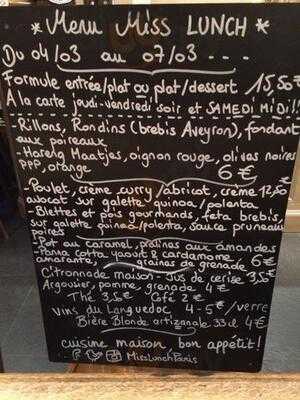 * Menu Miss LUNCH *
Du 04/03 au 07/03 ....
Formule entrée/plat ou plat/dessert 15,50€
A la carte jeudi-vendredi soir et SAMEDI MIDI!
-Rillons, Rondins (brebis Aveyron), fondant
aux poireaux
-Hareng Maatjes, oignon rouge, olives noires
PPP, orange 6€
-Poulet, crème curry/abricot, crème 12,50
avocat sur galette quinoa/polenta
-Blettes et pois gourmands, feta brebis,
sur galette quinoa/polenta, sauce pruneaux
poires
-Pot au caramel, pralines aux amandes
-Panna cotta yaourt & cardamome 6€
amaranto, graines de grenade
Citronnade maison - Jus de cerise 3,50€
Argousier, pomme, grenade 4€
Thé 3,50€ Café 2€
Vins du Languedoc 4-5€/verre
Bière Blonde artizanale 33cl 4€
cuisine maison bon appétit!
MissLunchParis